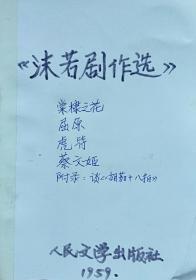 《沫若剧作选》
棠棣之花
屈原
虎符
蔡文姬
附录：谈《胡笳十八拍》
人民文学出版社
1959.